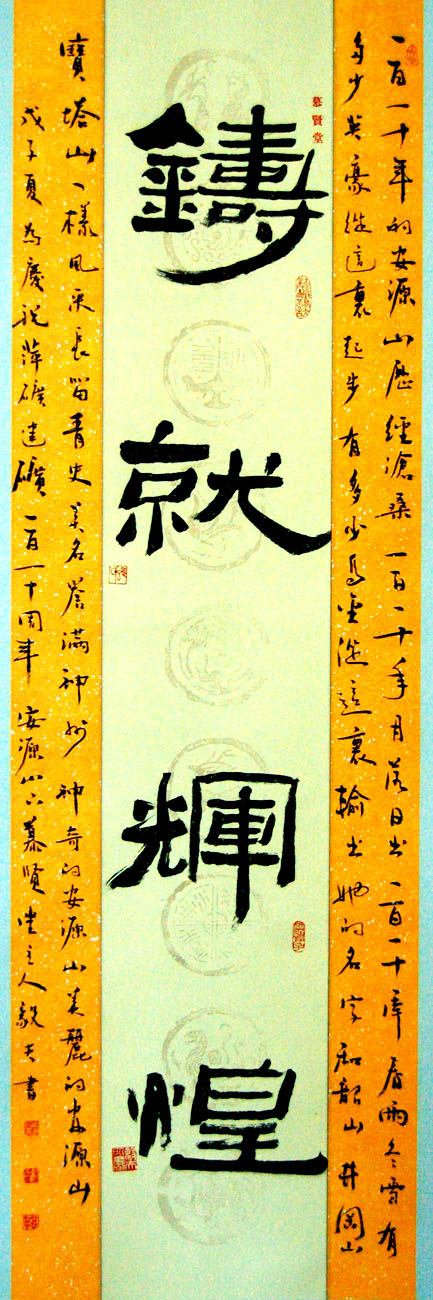 一百一十年的安源山歷經滄桑一百一十年月落日出一百一十年春雨冬雪有
多少英豪從這裏起步有多少烏金從這裏輸出她的名字和韶山井岡山
慕賢堂
鑄就輝煌
寶塔山一樣風采長留青史美名譽滿神州神奇的安源山美麗的安源山
戊子夏為慶祝萍礦建礦一百一十周年安源山下慕賢堂主人毅夫書